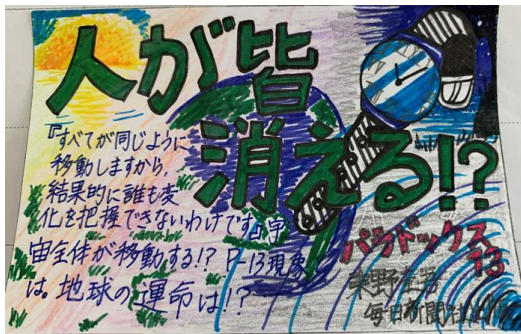 人が皆
消える!?
『すべてが同じように
移動しますから,
結果的に誰も変
化を把握できないわけです』宇
宙全体が移動する!? P-13現象
は。地球の運命は!?
パラドックス
13
東野圭吾
毎日新聞社